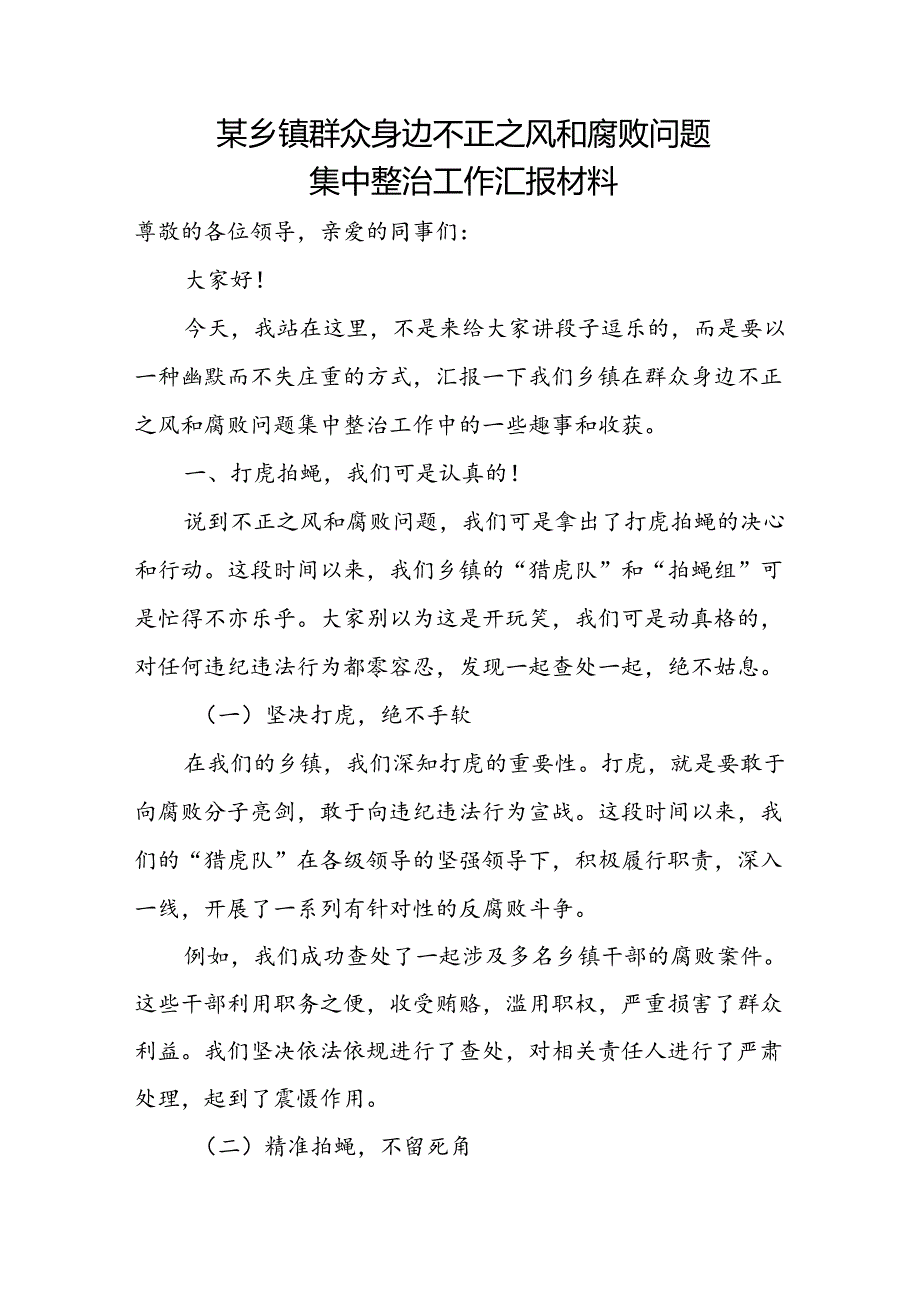 某乡镇群众身边不正之风和腐败问题
集中整治工作汇报材料
尊敬的各位领导，亲爱的同事们：
大家好！
今天，我站在这里，不是来给大家讲段子逗乐的，而是要以
一种幽默而不失庄重的方式，汇报一下我们乡镇在群众身边不正
之风和腐败问题集中整治工作中的一些趣事和收获。
一、打虎拍蝇，我们可是认真的！
说到不正之风和腐败问题，我们可是拿出了打虎拍蝇的决心
和行动。这段时间以来，我们乡镇的“猎虎队”和“拍蝇组”可
是忙得不亦乐乎。大家别以为这是开玩笑，我们可是动真格的，
对任何违纪违法行为都零容忍，发现一起查处一起，绝不姑息。
（一）坚决打虎，绝不手软
在我们的乡镇，我们深知打虎的重要性。打虎，就是要敢于
向腐败分子亮剑，敢于向违纪违法行为宣战。这段时间以来，我
们的“猎虎队”在各级领导的坚强领导下，积极履行职责，深入
一线，开展了一系列有针对性的反腐败斗争。
例如，我们成功查处了一起涉及多名乡镇干部的腐败案件。
这些干部利用职务之便，收受贿赂，滥用职权，严重损害了群众
利益。我们坚决依法依规进行了查处，对相关责任人进行了严肃
处理，起到了震慑作用。
（二）精准拍蝇，不留死角